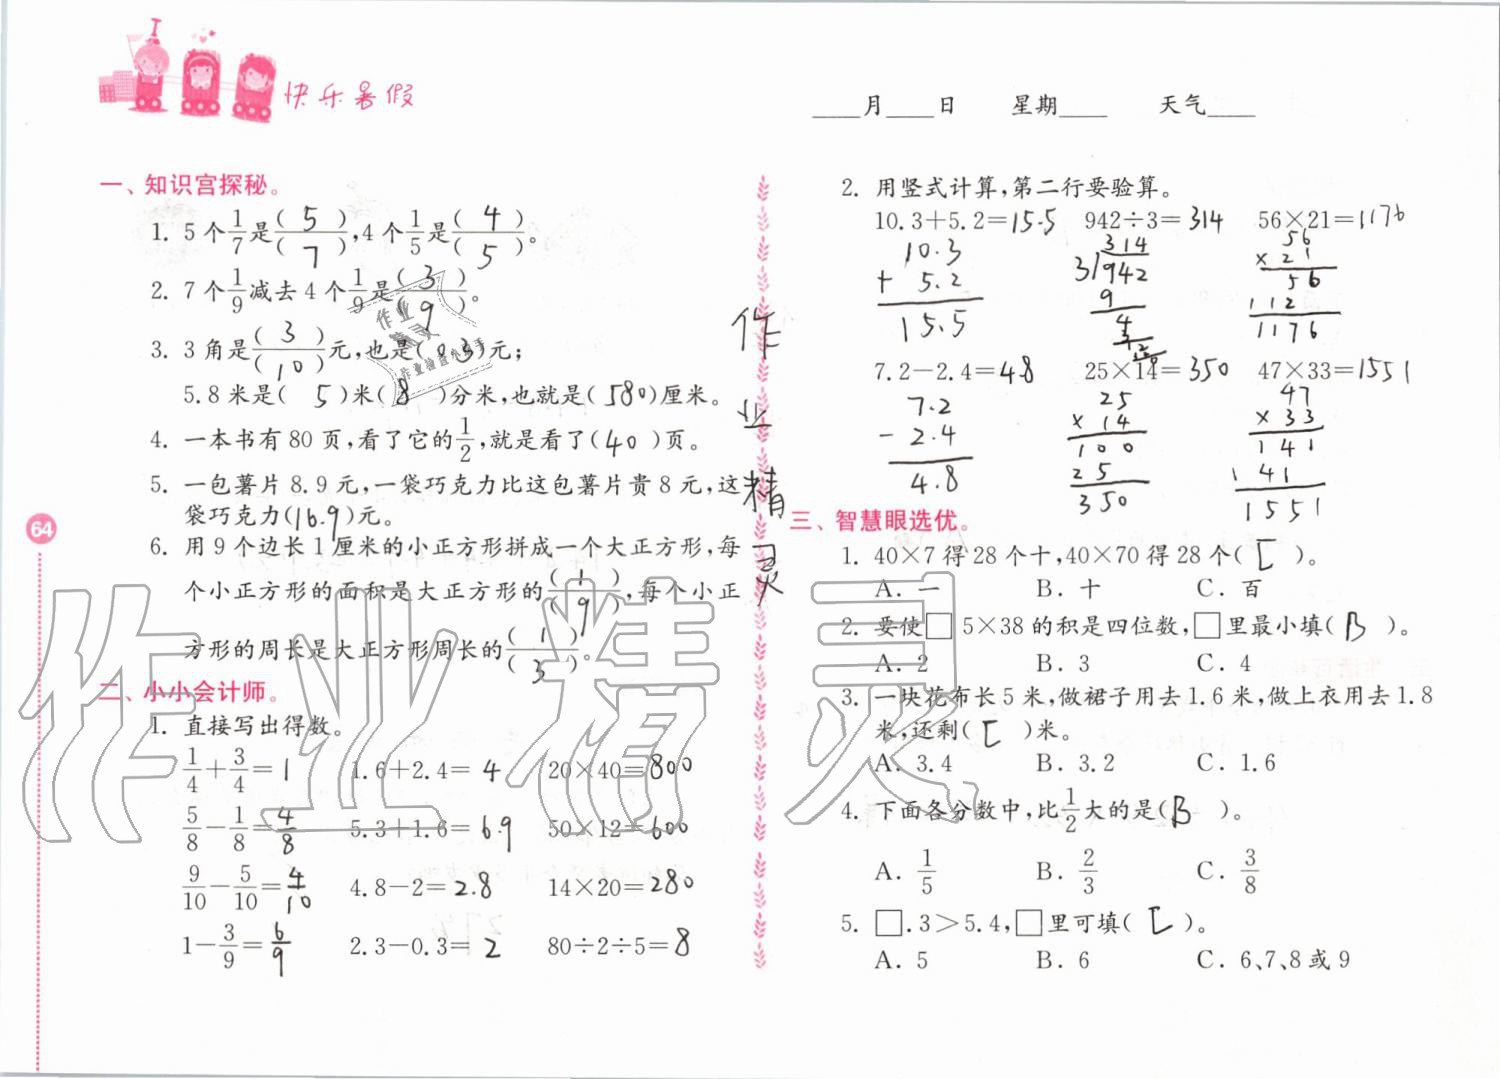 快乐暑假
____月____日 星期____ 天气____
一、知识宫探秘。
1. 5个1/7是(5)/(7),4个1/5是(4)/(5)。
2. 7个1/9减去4个1/9是(3)/(9)。
3. 3角是(3)/(10)元,也是(0.3)元;
5.8米是(5)米(8)分米,也就是(580)厘米。
4. 一本书有80页,看了它的1/2,就是看了(40)页。
5. 一包薯片8.9元,一袋巧克力比这包薯片贵8元,这
袋巧克力(16.9)元。
6. 用9个边长1厘米的小正方形拼成一个大正方形,每
个小正方形的面积是大正方形的(1)/(9),每个小正
方形的周长是大正方形周长的(1)/(3)。
二、小小会计师。
1. 直接写出得数。
1/4+3/4=1 1.6+2.4=4 20×40=800
5/8-1/8=4/8 5.3+1.6=6.9 50×12=600
9/10-5/10=4/10 4.8-2=2.8 14×20=280
1-3/9=6/9 2.3-0.3=2 80÷2÷5=8
64
作业精灵
作业精灵
2. 用竖式计算,第二行要验算。
10.3+5.2=15.5 942÷3=314 56×21=1176
10.3 314 56
+ 5.2 3)942 ×21
15.5 9 56
4 112
1176
7.2-2.4=4.8 25×14=350 47×33=1551
7.2 25 47
- 2.4 ×14 ×33
4.8 100 141
25 141
350 1551
三、智慧眼选优。
1. 40×7得28个十,40×70得28个(C)。
A. 一 B. 十 C. 百
2. 要使□5×38的积是四位数,□里最小填(B)。
A. 2 B. 3 C. 4
3. 一块花布长5米,做裙子用去1.6米,做上衣用去1.8
米,还剩(C)米。
A. 3.4 B. 3.2 C. 1.6
4. 下面各分数中,比1/2大的是(B)。
A. 1/5 B. 2/3 C. 3/8
5. □.3>5.4,□里可填(C)。
A. 5 B. 6 C. 6、7、8或9